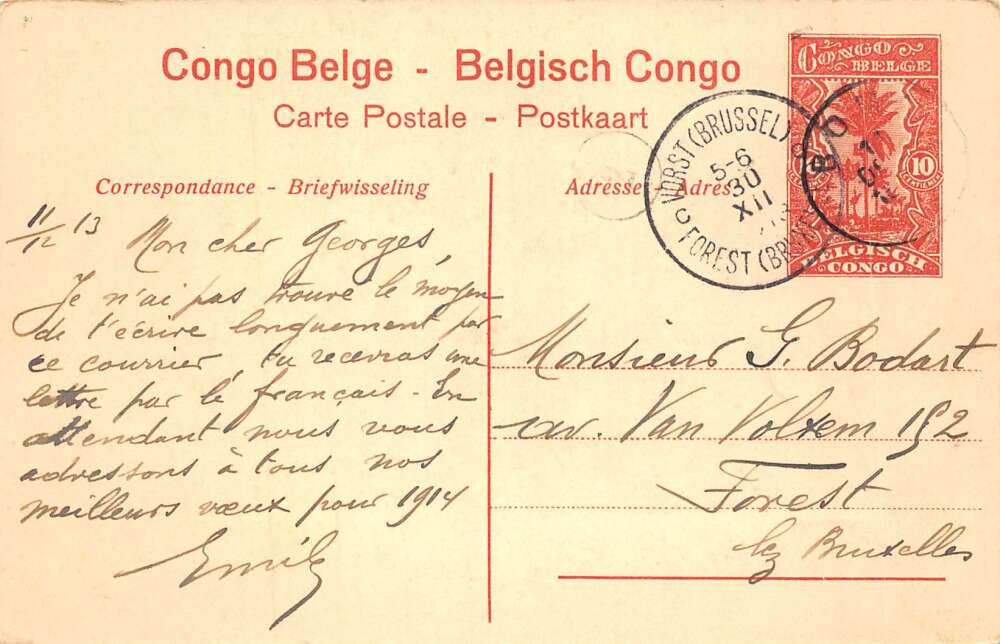 Congo Belge - Belgisch Congo
Carte Postale - Postkaart
CONGO BELGE
10
10
CENTIEMES
BELGISCH CONGO
VORST (BRUSSEL)
5-6
30
XII
FOREST (
BO
Correspondance - Briefwisseling
Adresse - Adres
11/12 13
Mon cher Georges,
Je n'ai pas trouvé le moyen
de t'écrire longuement par
ce courrier, tu recevras une
lettre par le français - En
attendant nous vous
adressons à tous nos
meilleurs vœux pour 1914
Emile
Monsieur G. Bodart
av. Van Volxem 152
Forest
lez Bruxelles